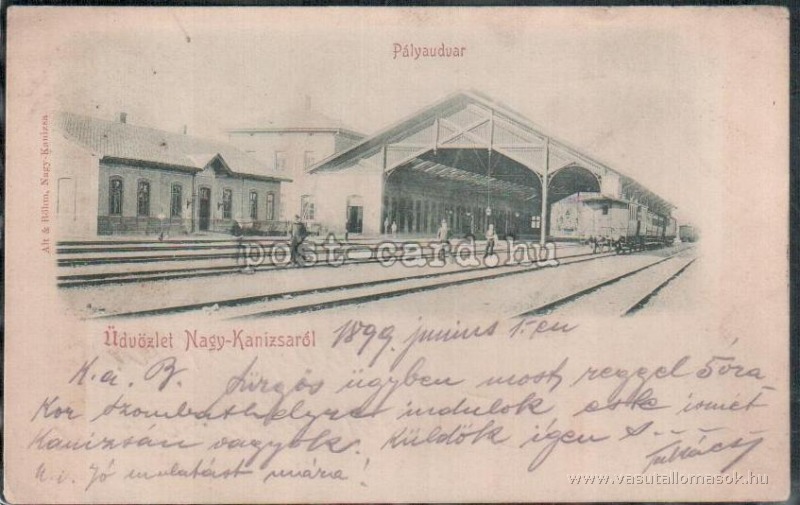 Pályaudvar
Alt & Böhm, Nagy-Kanizsa
post-card.hu
Üdvözlet Nagy-Kanizsaról 1899. junius 1.-en
K.a. B. Sürgös ügyben most reggel 5 óra
kor Szombathelyre indulok este ismét
Kanizsán vagyok. Küldök igen s
Jó mulatást mára!
www.vasutallomasok.hu